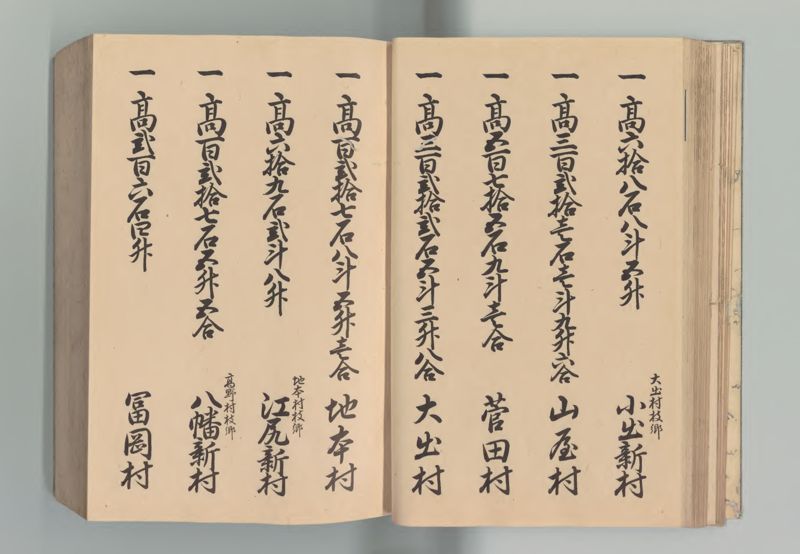 一高六拾八石八斗五升
大出村枝郷
小出新村
一高三百弐拾壱石壱斗九升六合
山屋村
一高五百七拾五石九斗壱合
菅田村
一高三百弐拾弐石五斗三升八合
大出村
一高百弐拾七石八斗五升壱合
地本村
一高六拾九石弐斗八升
地本村枝郷
江尻新村
一高百弐拾七石五升五合
高野村枝郷
八幡新村
一高弐百六石四升
冨岡村